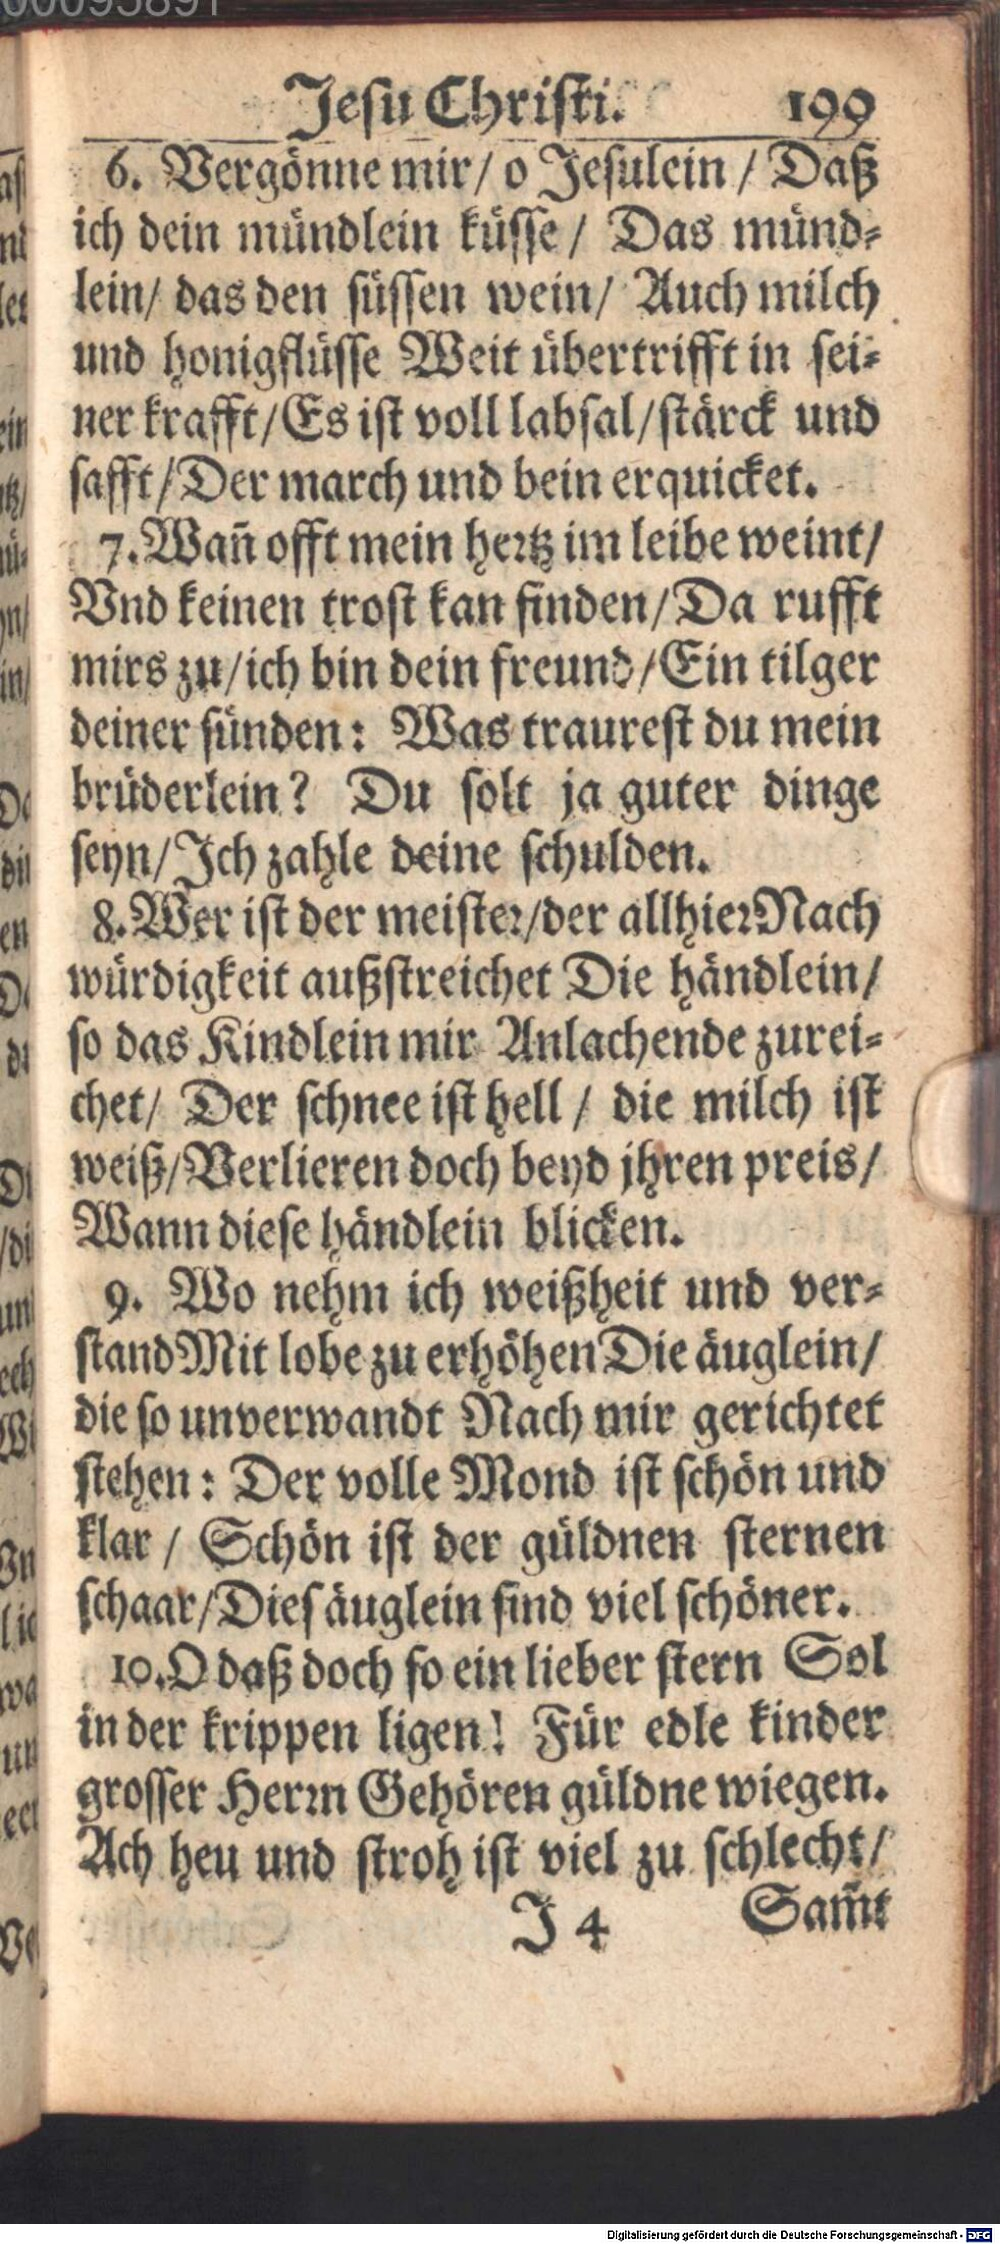 Jesu Christi. 199
6. Vergönne mir/ o Jesulein / Daß
ich dein mündlein küsse / Das münd-
lein/ das den süssen wein/ Auch milch
und honigflüsse Weit übertrifft in sei-
ner krafft/Es ist voll labsal/stärck und
safft/Der march und bein erquicket.
7. Wañ offt mein hertz im leibe weint/
Vnd keinen trost kan finden/Da rufft
mirs zu/ich bin dein freund/Ein tilger
deiner sünden: Was traurest du mein
brüderlein? Du solt ja guter dinge
seyn/Ich zahle deine schulden.
8. Wer ist der meister/der allhier Nach
würdigkeit außstreichet Die händlein/
so das Kindlein mir Anlachende zurei-
chet/ Der schnee ist hell / die milch ist
weiß/Verlieren doch beyd jhren preis/
Wann diese händlein blicken.
9. Wo nehm ich weißheit und ver-
stand Mit lobe zu erhöhen Die äuglein/
die so unverwandt Nach mir gerichtet
stehen: Der volle Mond ist schön und
klar / Schön ist der güldnen sternen
schaar/Dies äuglein sind viel schöner.
10. O daß doch so ein lieber stern Sol
in der krippen ligen! Für edle kinder
grosser Herrn Gehören güldne wiegen.
Ach heu und stroh ist viel zu schlecht/
J 4 Sam̃t
Digitalisierung gefördert durch die Deutsche Forschungsgemeinschaft - DFG